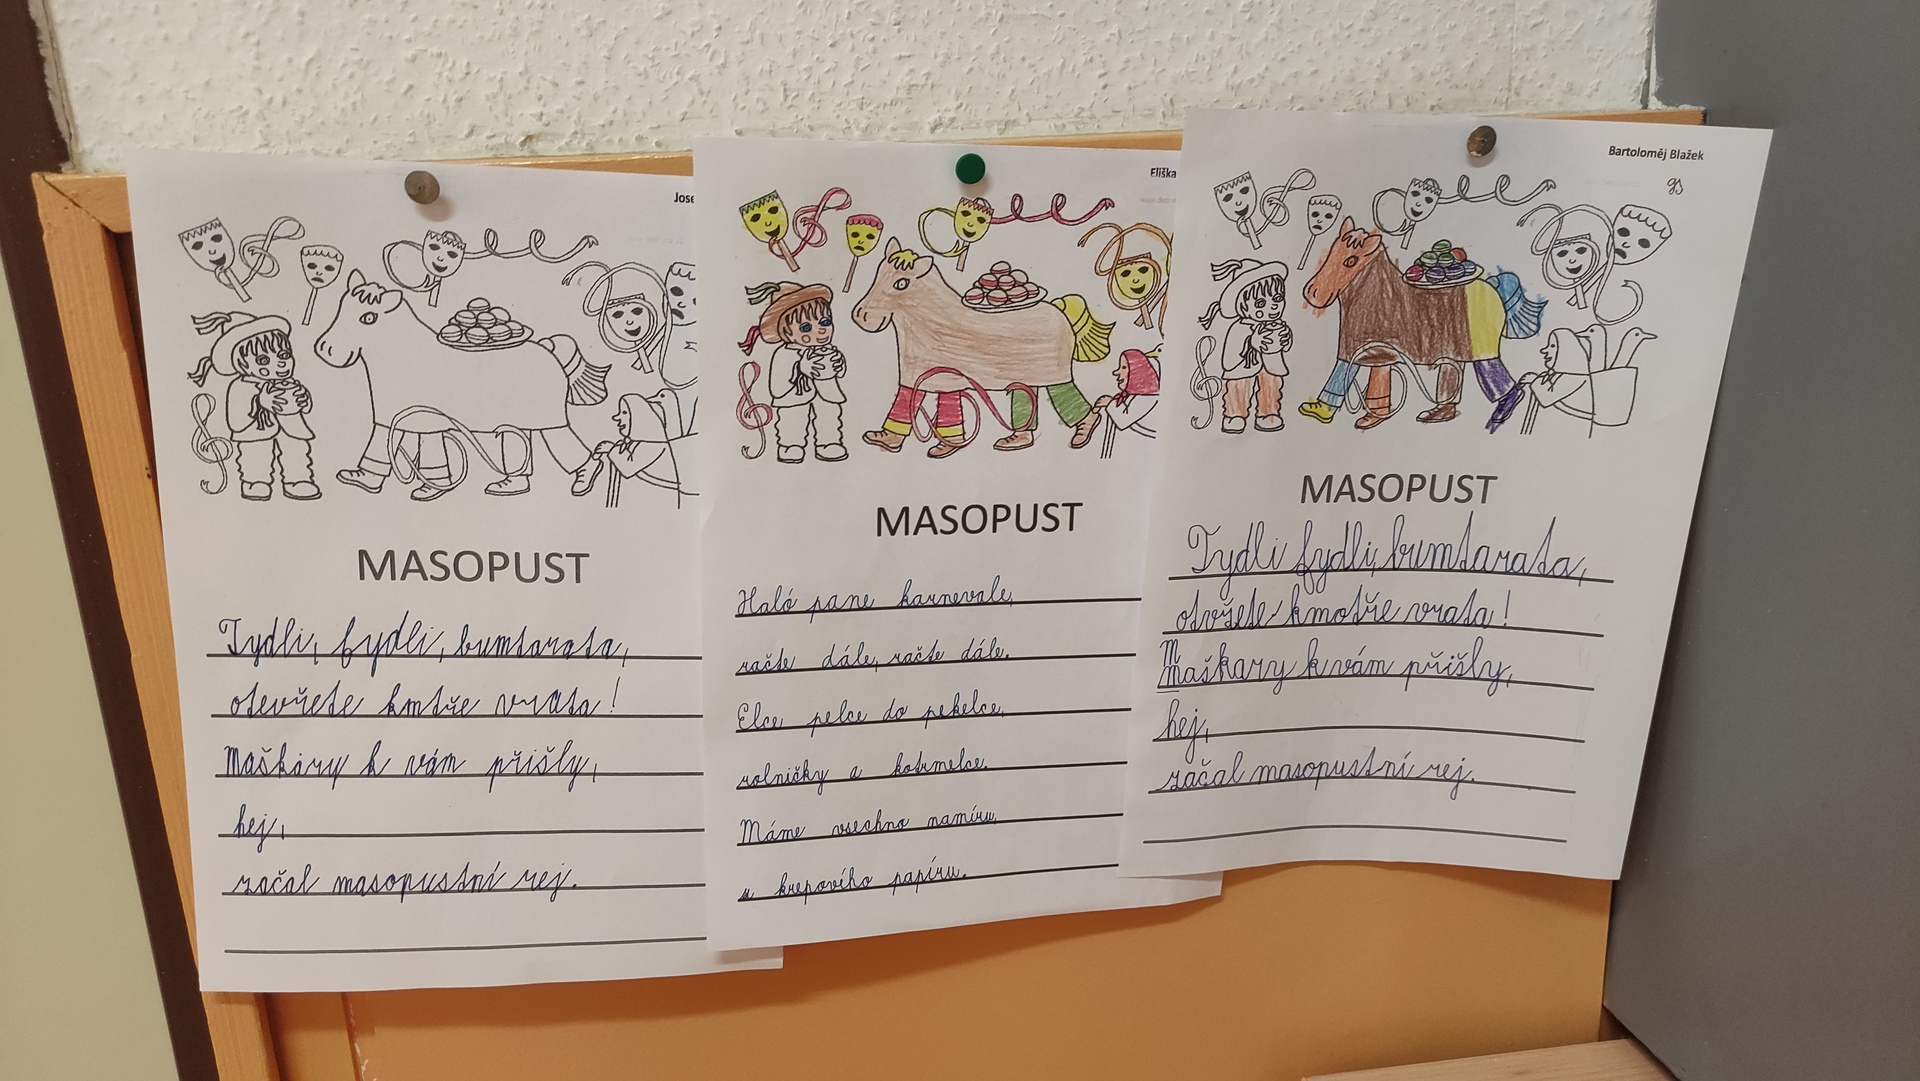 Jose
MASOPUST
Tydli, fydli, bumtarata,
otevřete kmtře vrata!
Maškary k vám přišly,
hej,
začal masopustní rej.
Eliška
MASOPUST
Haló pane karnevale,
račte dále, račte dále.
Elce pelce do pekelce,
rolničky a kotrmelce.
Máme všechno namíru,
z krepovího papíru.
Bartoloměj Blažek
MASOPUST
Tydli fydli, bumtarata,
otvřete kmotře vrata!
Maškary k vám přišly,
hej,
začal masopustní rej.